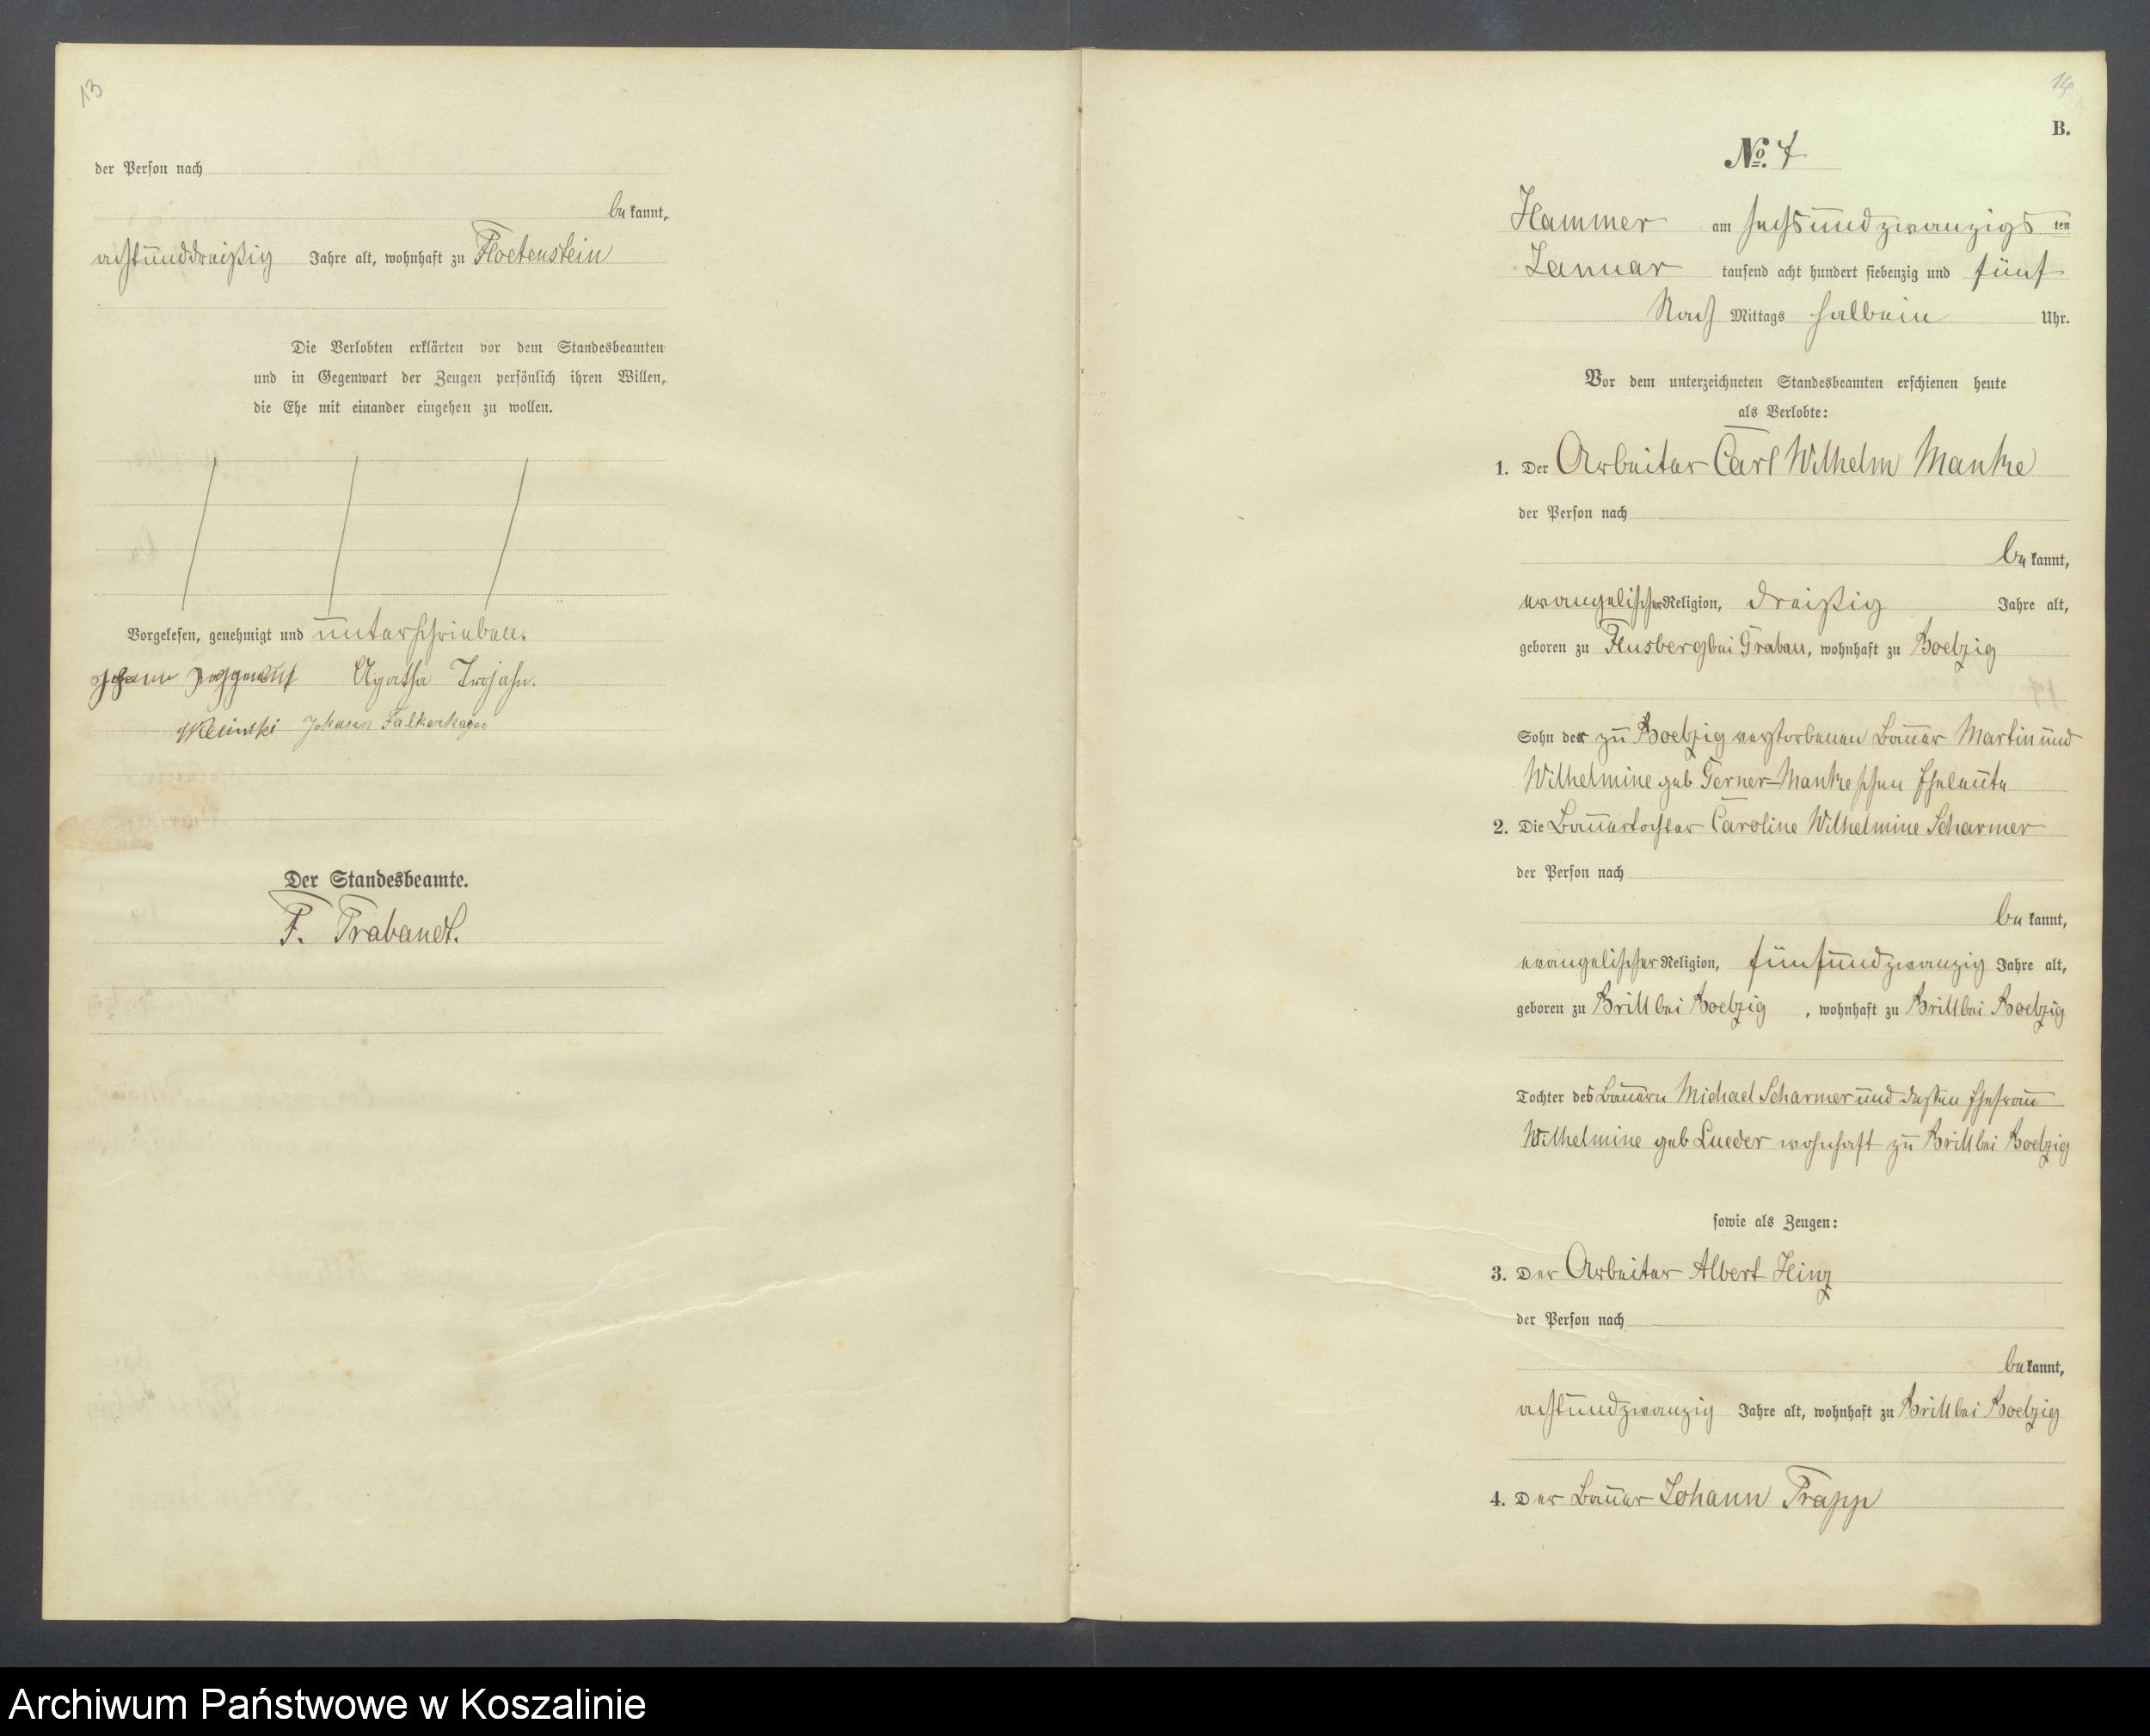 13
der Person nach
be kannt,
achtunddreißig Jahre alt, wohnhaft zu Floetenstein
Die Verlobten erklärten vor dem Standesbeamten
und in Gegenwart der Zeugen persönlich ihren Willen,
die Ehe mit einander eingehen zu wollen.
Vorgelesen, genehmigt und unterschrieben.
Agatha Trojahn.
Johann Falkenhagen
Der Standesbeamte.
F. Prabandt.
14
B.
No. 7
Hammer am sechsundzwanzigs ten
Januar tausend acht hundert siebenzig und fünf
Nach Mittags halbein Uhr.
Vor dem unterzeichneten Standesbeamten erschienen heute
als Verlobte:
1. Der Arbeiter Carl Wilhelm Manke
der Person nach
be kannt,
evangelischer Religion, dreißig Jahre alt,
geboren zu Flusberg bei Grabau, wohnhaft zu Boelzig
Sohn der zu Boelzig verstorbenen Bauer Martin und
Wilhelmine geb Gerner-Mankeschen Eheleute
2. Die Bauertochter Caroline Wilhelmine Scharmer
der Person nach
be kannt,
evangelischer Religion, fünfundzwanzig Jahre alt,
geboren zu Brill bei Boelzig, wohnhaft zu Brill bei Boelzig
Tochter des Bauern Michael Scharmer und dessen Ehefrau
Wilhelmine geb Lueder wohnhaft zu Brill bei Boelzig
sowie als Zeugen:
3. Der Arbeiter Albert Hinz
der Person nach
be kannt,
achtundzwanzig Jahre alt, wohnhaft zu Brill bei Boelzig
4. Der Bauer Johann Trapp
Archiwum Państwowe w Koszalinie